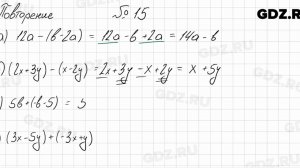 Повторение № 15 GDZ.RU
) 12a - (b - 2a) = 12a - b + 2a = 14a - b
) (2x + 3y) - (x - 2y) = 2x + 3y - x + 2y = x + 5y
) 5b + (b - 5) = 5
) (3x - 5y) + (-3x + y)